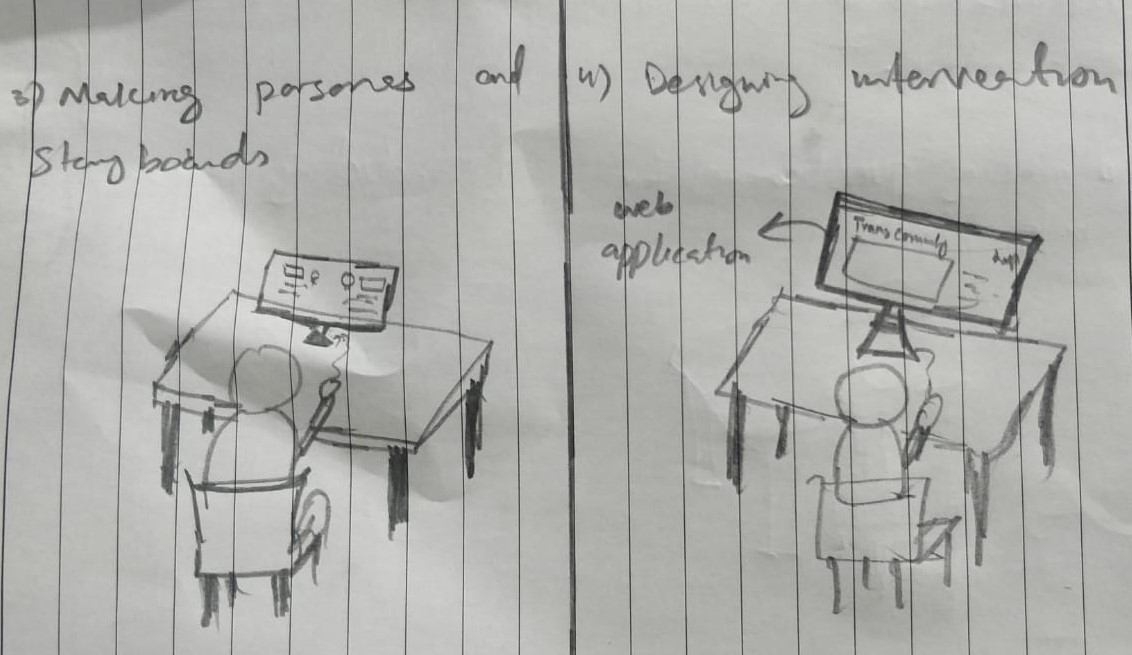 3) Making personas and
Story boards
4) Designing intervention
web
application
Trans Community